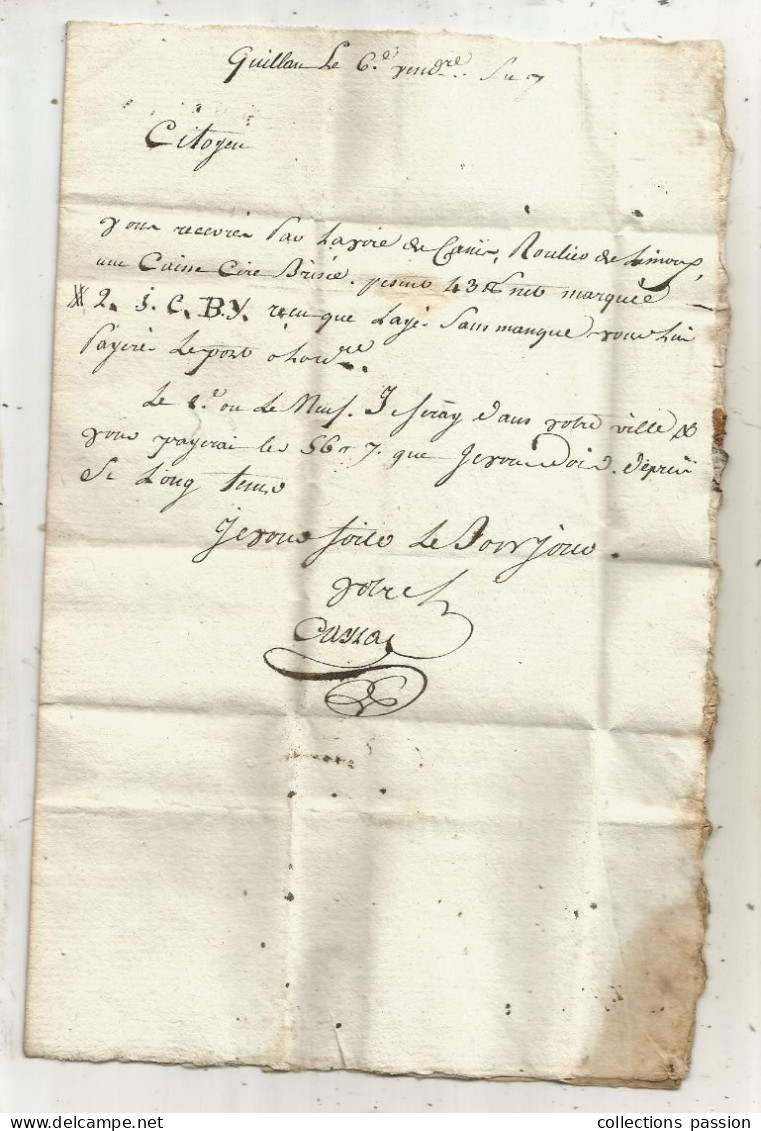 Quillan Le 6.e vend.re
Citoyen
vous recevrez Par La voie de Canis, Roulier de Limoux,
une Caisse Cire Brisée. pesant 43 net marquée
2. J. C. B.Y. recu que Laye Sans manque vous lui
Payerez Le port
Le 8.e ou Le Neuf. J seray dans votre ville &
vous payerai les 56 7. que Je vous Dois. depuis
Si Long tems
Je vous soite Le Bonjour.
votre
Cuxxa
collections passion